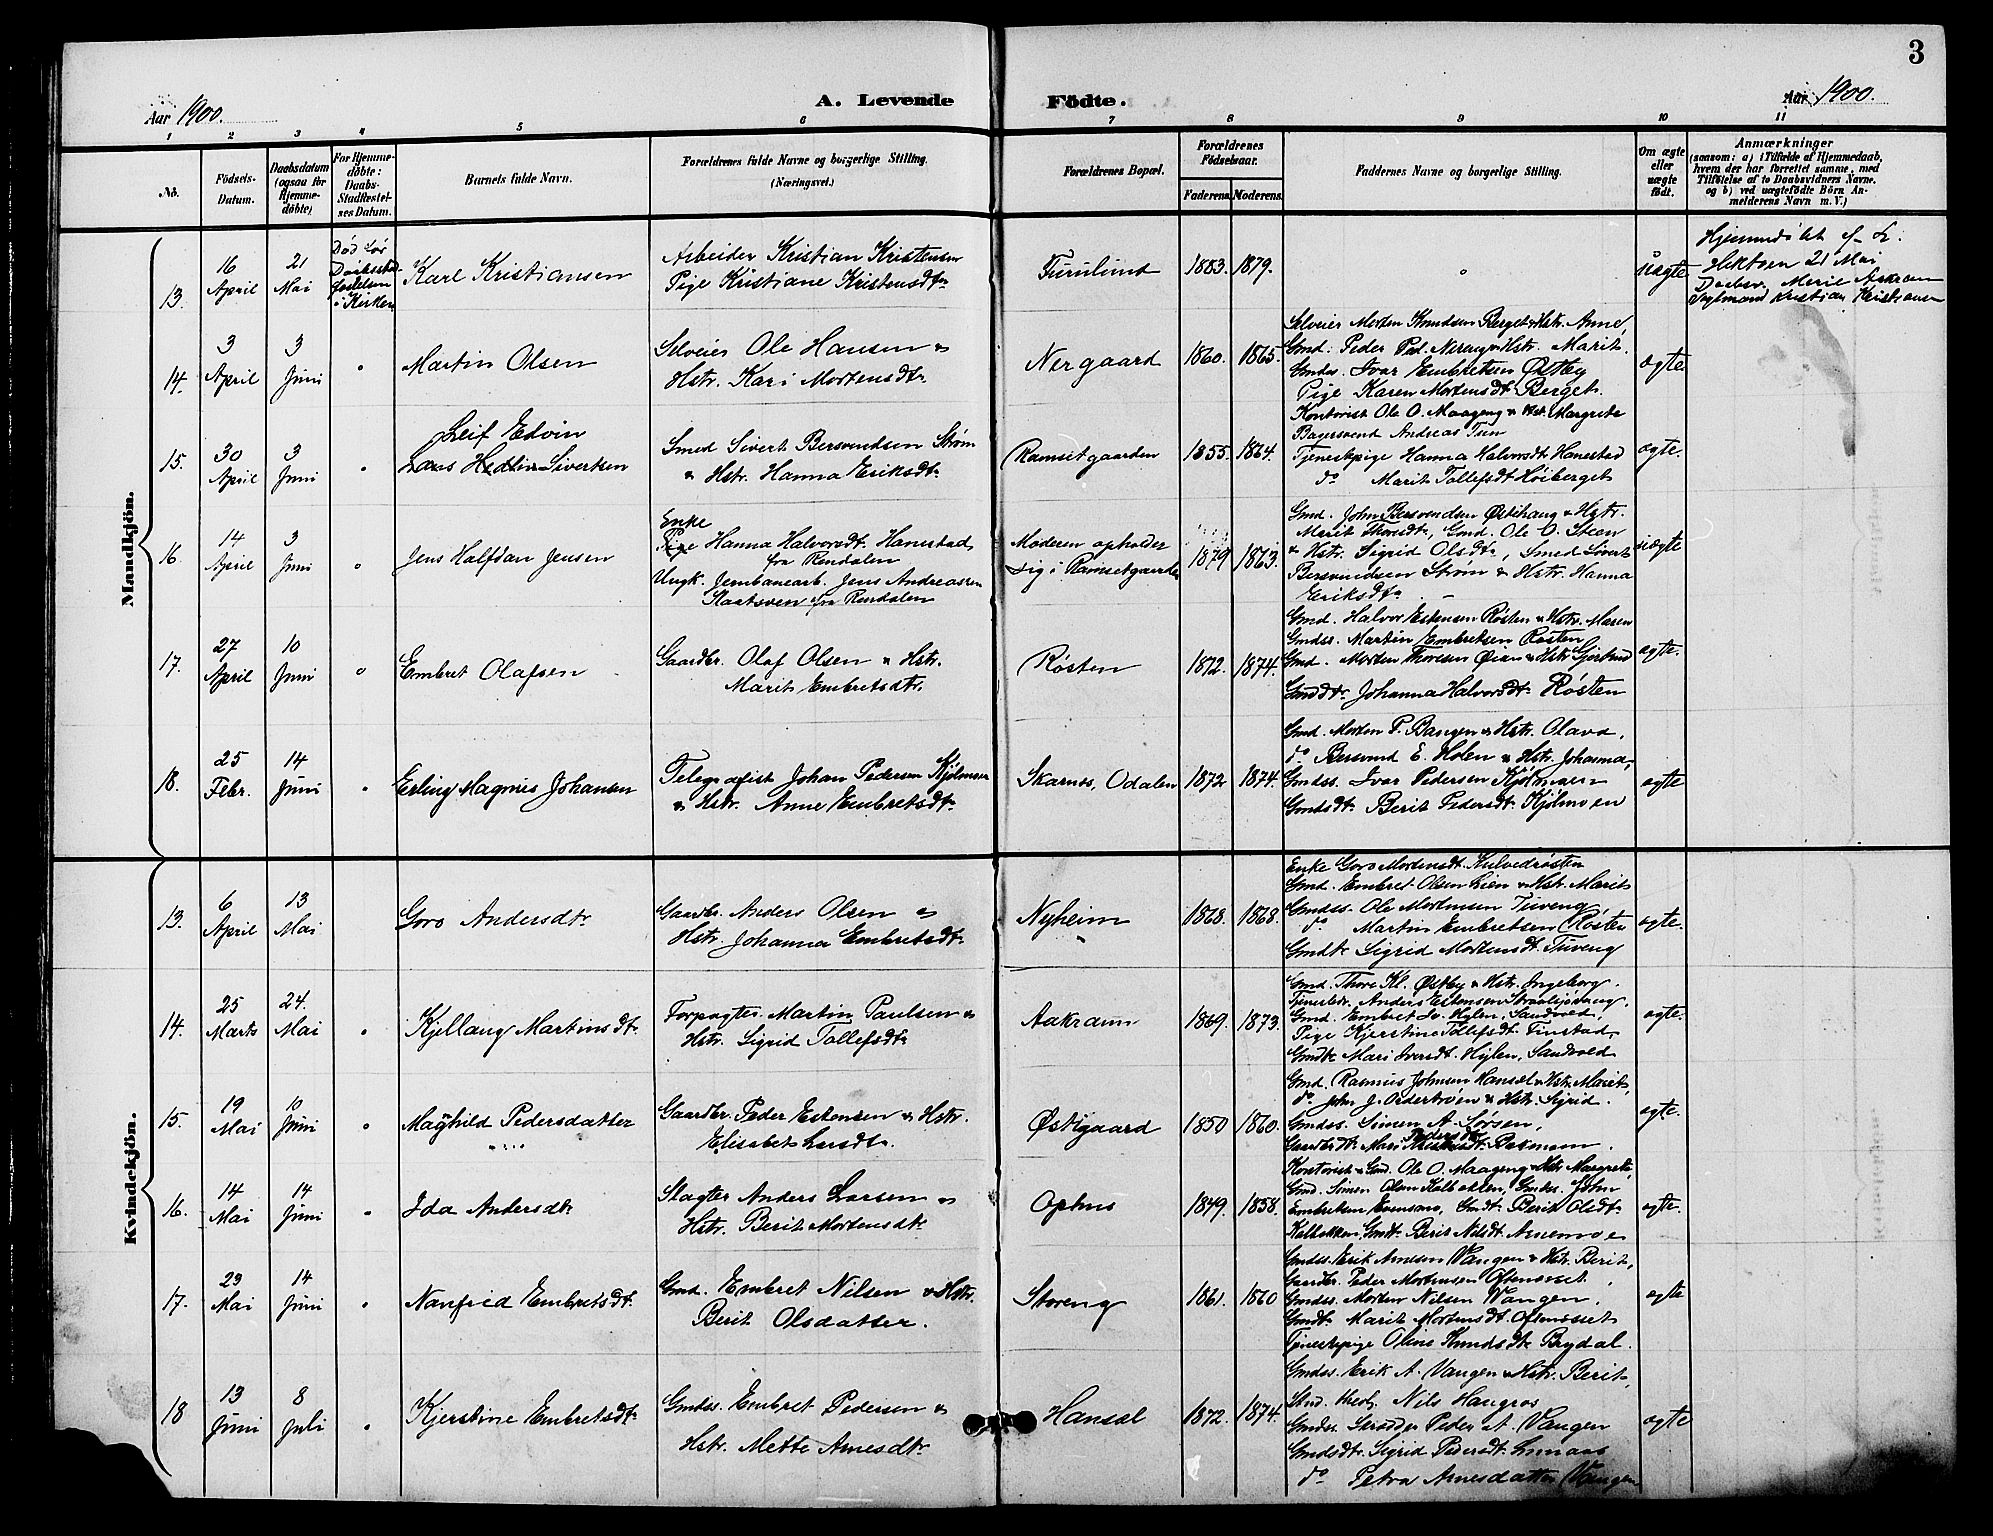 3
Aar 1900.
A. Levende Födte.
Aar 1900.
1 2 3 4 5 6 7 8 9 10 11
No.
Födsels-Datum.
Daabsdatum (ogsaa for Hjemme-döbte)
For Hjemme-döbte: Daabs-Stadfæstel-ses Datum.
Barnets fulde Navn.
Forældrenes fulde Navne og borgerlige Stilling.
(Næringsvei.)
Forældrenes Bopæl.
Forældrenes Födselsaar.
Faderens. Moderens.
Faddernes Navne og borgerlige Stilling.
Om ægte eller uægte födt.
Anmærkninger
(saasom: a) i Tilfælde af Hjemmedaab,
hvem der har forrettet samme, med
Tilföielse af to Daabsvidners Navne.
og b) ved uægtefödte Börn An-
melderens Navn m. V.)
Mandkjön.
13. 16 April 21 Mai
Død før Daabsstad-fæstelsen i Kirken
Karl Kristiansen
Arbeider Kristian Kristensen
Pige Kristiane Kristensdtr
Furulund 1883. 1879.
uægte
Hjemmedøbt af L.
21 Mai
Marie Aakrann
Kristian Kristiansen
14. 3 April 3 Juni
Martin Olsen
Selveier Ole Hansen &
Hstr. Kari Mortensdtr.
Nergaard 1860. 1865.
Selveier Morten Knudsen Berget & Hstr. Anne,
Gmd. Peder Ped. Nereng & Hstr. Marit.
Gmdss. Ivar Embretsen Østby
Pige Karen Mortensdt. Berget.
ægte
15. 30 April 3 Juni
Leif Edvin
Sivertsen
Smed Sivert Bersvendsen Strøm
& Hstr. Hanna Eriksdtr.
Ramsetgaarden 1855. 1864.
Kontorist Ole O. Maageng & Hst. Margrete
Bagersvend Andreas
Tjenestpige Hanna Halvorsdt Hanestad
do Marit Tollefsdt Høiberget
ægte.
16. 14 April 3 Juni
Jens Halfdan Jensen
Enke
Pige Hanna Halvorsdt. Hanestad
fra Rendalen
Ungk. Jernbanearb. Jens Andreassen
fra Rendalen
Moderen opholder
sig i Ramsetgaarden 1879 1863.
Gmd. John Bersvendsen Østihaug & Hstr.
Marit Thoresdt., Gmd. Ole O. Steen
& Hstr. Sigrid Olsdtr, Smed Sivert
Bersvendsen Strøm & Hstr. Hanna
Eriksdtr.
uægte
17. 27 April 10 Juni
Embret Olafsen
Gaardbr. Olaf Olsen & Hstr.
Marit Embretsdtr.
Røsten 1872. 1874.
Gmd. Halvor Estensen Røsten & Hstr. Maren
Gmdss. Martin Embretsen Røsten
Gmd. Morten Thoresen Øian & Hstr Gjertrud
Johanna Halvorsdt. Røsten
ægte.
18. 25 Febr. 14 Juni
Erling Magnus Johansen
Telegrafist Johan Pedersen Kjølmoen
& Hstr. Anne Embretsdtr.
Skarnes, Odalen 1872 1874.
Gmd. Morten P. Bangen & Hstr. Olava,
do Bersvend E. Holen & Hstr. Johanna,
Gmdss. Ivar Pedersen Kjølmoen
Gmdsdt. Berit Pedersdt. Kjølmoen
ægte
Kvindekjön.
13. 6 April 13 Mai
Goro Andersdtr
Gaardbr. Anders Olsen &
Hstr. Johanna Embretsdt.
Nyheim 1868. 1868.
Enke Goro Mortensdt. Kulvedrøsten
Gmd. Embret Olsen Lien & Hst. Marit
Gmdss. Ole Mortensen Tuveng
do Martin Embretsen Røsten
Gmdtr Sigrid Mortensdt. Tuveng
ægte.
14. 25 Marts 24. Mai
Kjellaug Martinsdt.
Forpagter Martin Paulsen &
Hstr. Sigrid Tollefsdt.
Aakrann 1869. 1873.
Gmd. Thore Kl. Østby & Hstr. Ingeborg.
Anders Estensen
Gmd. Embret Iv. Hylen, Sandvold,
Pige Kjerstine Tollefsdt. Finstad,
Gmdtr Mari Iversdt. Hylen, Sandvold
ægte.
15. 19 Mai 10 Juni
Maghild Pedersdatter
Gaardbr. Peder Estensen & Hstr.
Elisabet Larsdt.
Østigaard 1850 1860.
Gmd. Rasmus Johnsen Hansæl & Hstr. Marit,
do. John J. Ordertrøen & Hstr. Sigrid.
Gmdss. Simen A. Sørsen,
Gaardbrdt. Mari Pedersdt. Bakmann.
ægte.
16. 14 Mai 14 Juni
Ida Andersdt.
Slagter Anders Larsen &
Hstr. Berit Mortensdt.
Ophus 1849. 1858.
Kontorist & Gmd. Ole O. Maageng & Hstr Margrete,
Gmd. Simen Olsen Kalbakken, Gmdss. John
Embretsen Evensmo, Gmdt. Berit Olsdt.
Kalbakken, Gmdt. Berit Nilsdt. Arnemoe
ægte.
17. 23 Mai 14 Juni
Nanfrid Embretsdt.
Gmd. Embret Nilsen & Hstr.
Berit Olsdatter.
Storeng 1861. 1860
Gmdss. Erik Arnesen Vangen & Hst. Berit,
Gaardbr. Peder Mortensen Oftenæset,
Gmdss. Morten Nilsen Vangen,
Gmdt. Marit Mortensdt. Oftenæset
Tjenestpige Oline Knudsdt. Brydal.
ægte
18 13 Juni 8 Juli
Kjerstine Embretsdt.
Gmdss. Embret Pedersen &
Hstr. Mette Arnesdtr.
Hansæl 1872. 1874.
Gmdss. Erik A. Vangen & Hstr. Berit,
Stud. theol. Nils Haugros
Gmdss. Skrædder Peder A. Vangen
Gmdsdt. Sigrid Pedersdt.
do Petra Arnesdatter Vangen
ægte